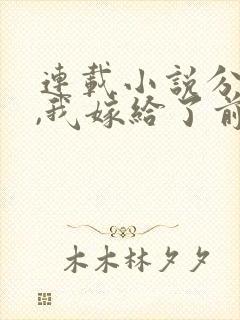 連載小説分
,我嫁給了前
木木林夕夕